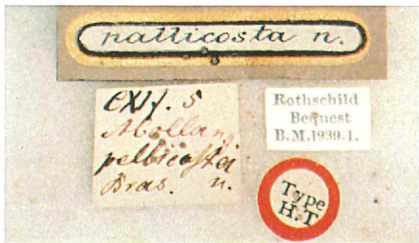 pallicosta n.
Exot. 5
pellicosta
Bras. n.
Rothschild
Bequest
B.M.1939.1.
Type
H.T